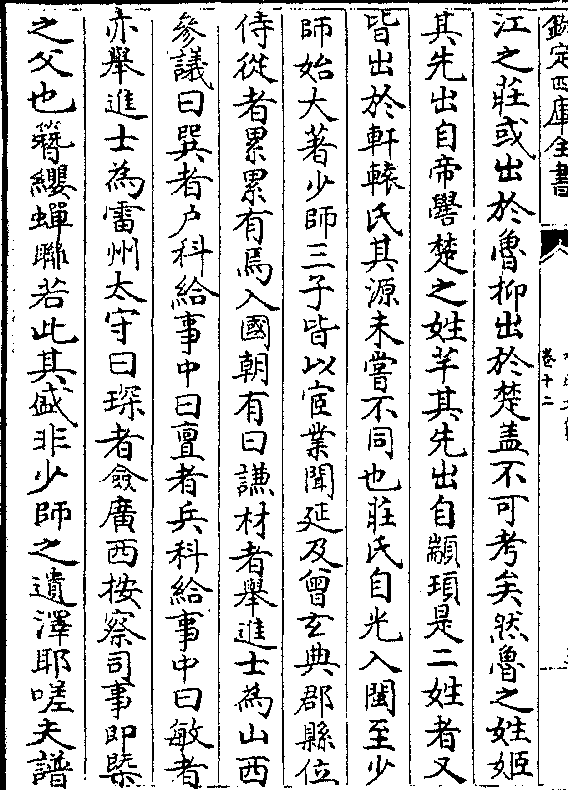 欽定四庫全書
卷十二
江之莊或出於魯抑出於楚盖不可考矣然魯之姓姬
其先出自帝嚳楚之姓芊其先出自顓頊是二姓者又
皆出於軒轅氏其源未嘗不同也莊氏自光入閩至少
師始大著少師三子皆以宦業聞延及曾玄典郡縣位
侍從者累累有焉入國朝有曰謙材者舉進士為山西
參議曰巽者户科給事中曰亶者兵科給事中曰敏者
亦舉進士為雷州太守曰琛者僉廣西按察司事即槩
之父也簮纓蟬聮若此其盛非少師之遺澤耶嗟夫譜